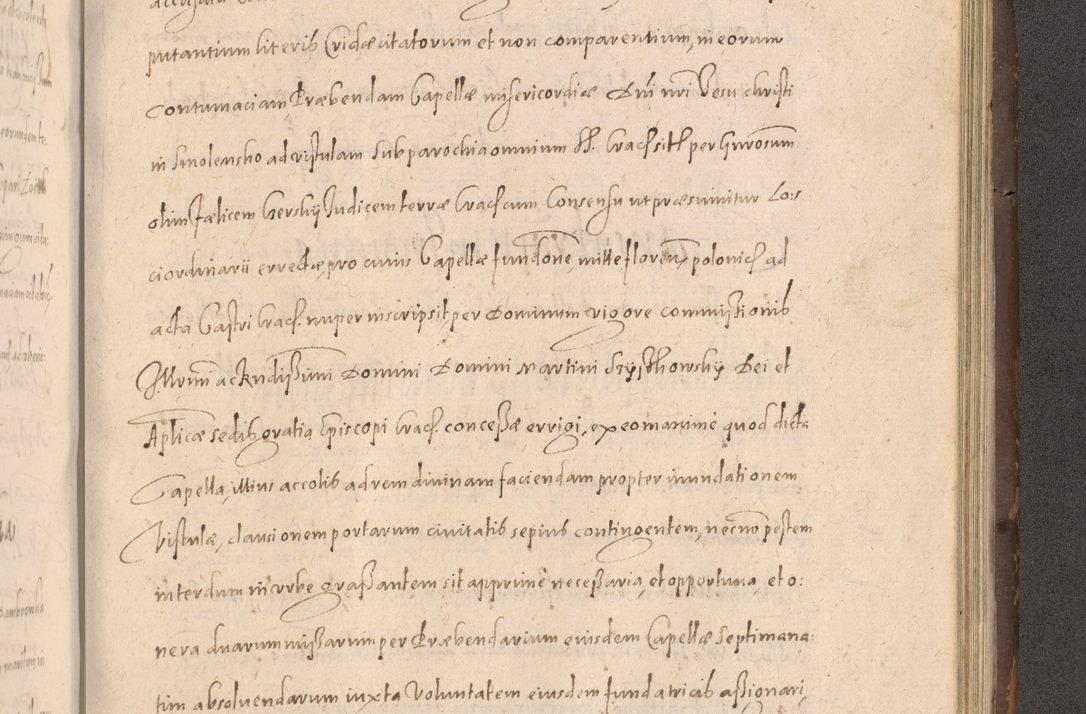 putantium literis Cridæ citatorum et non comparentium, in eorum
contumaciam Præbendam Capellæ misericordiæ Dni nri Iesu christi
in Smolensko ad vistulam sub parochia omnium SS. Crac sit per Gnrosum
olim Fælicem Gerskij Iudicem terræ Crac cum Consensu ut præsumitur Lo:s
ci ordinarii errectæ pro cuius Capellæ fundone, mille floren polonic ad
acta Castri Crac. nuper inscripsit per Dominum vigore commistionis
Illmi ac Rndissimi Domini Domini Martini Szyszkowsky Dei et
Aplicæ sedis gratia Episcopi Crac. concessæ errigi, ex eo maxime quod dicta
Capella illius accolis ad rem diuinam faciendam propter inundationem
Vistulæ, clausionem portarum ciuitatis sepius contingentem, necno pestem
interdum in vrbe grassantem sit apprime necessaria et opportuna et o:
nera duarum missarum per Præbendarium eiusdem Capellæ septimana:
tim absoluendarum iuxta Voluntatem eiusdem fundatricis assionari